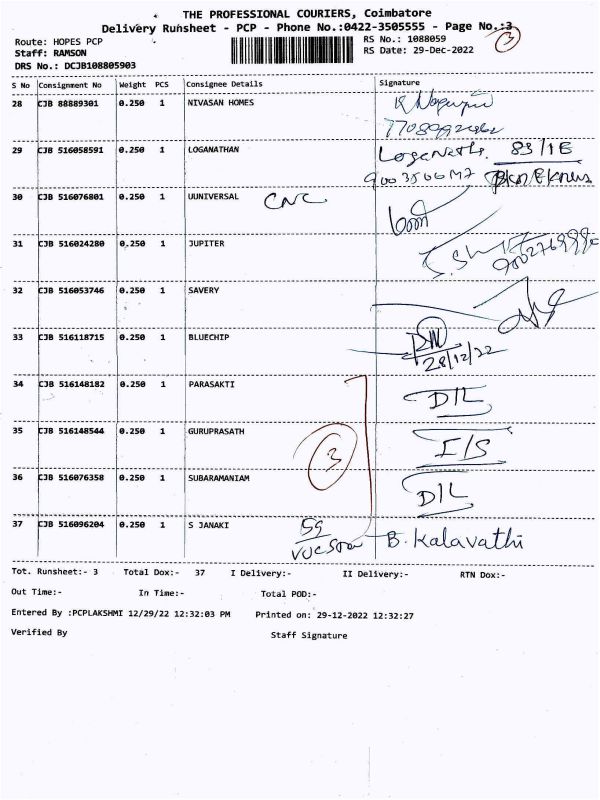 THE PROFESSIONAL COURIERS, Coimbatore
Delivery Runsheet - PCP - Phone No.:0422-3505555 - Page No.:3
Route: HOPES PCP RS No.: 1088059 3
Staff: RAMSON RS Date: 29-Dec-2022
DRS No.: DCJB108805903
S No Consignment No Weight PCS Consignee Details Signature
28 CJB 88889301 0.250 1 NIVASAN HOMES
29 CJB 516058591 0.250 1 LOGANATHAN Loganath. 83/1E
30 CJB 516076801 0.250 1 UUNIVERSAL CNC
31 CJB 516024280 0.250 1 JUPITER
32 CJB 516053746 0.250 1 SAVERY
33 CJB 516118715 0.250 1 BLUECHIP
28/12/22
34 CJB 516148182 0.250 1 PARASAKTI D/L
35 CJB 516148544 0.250 1 GURUPRASATH 3 I/S
36 CJB 516076358 0.250 1 SUBARAMANIAM D/L
37 CJB 516096204 0.250 1 S JANAKI 59 B. Kalavathi
Tot. Runsheet:- 3 Total Dox:- 37 I Delivery:- II Delivery:- RTN Dox:-
Out Time:- In Time:- Total POD:-
Entered By :PCPLAKSHMI 12/29/22 12:32:03 PM Printed on: 29-12-2022 12:32:27
Verified By Staff Signature